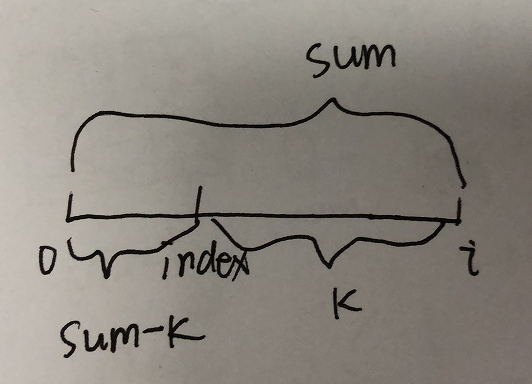 sum
0 index i
K
sum-K